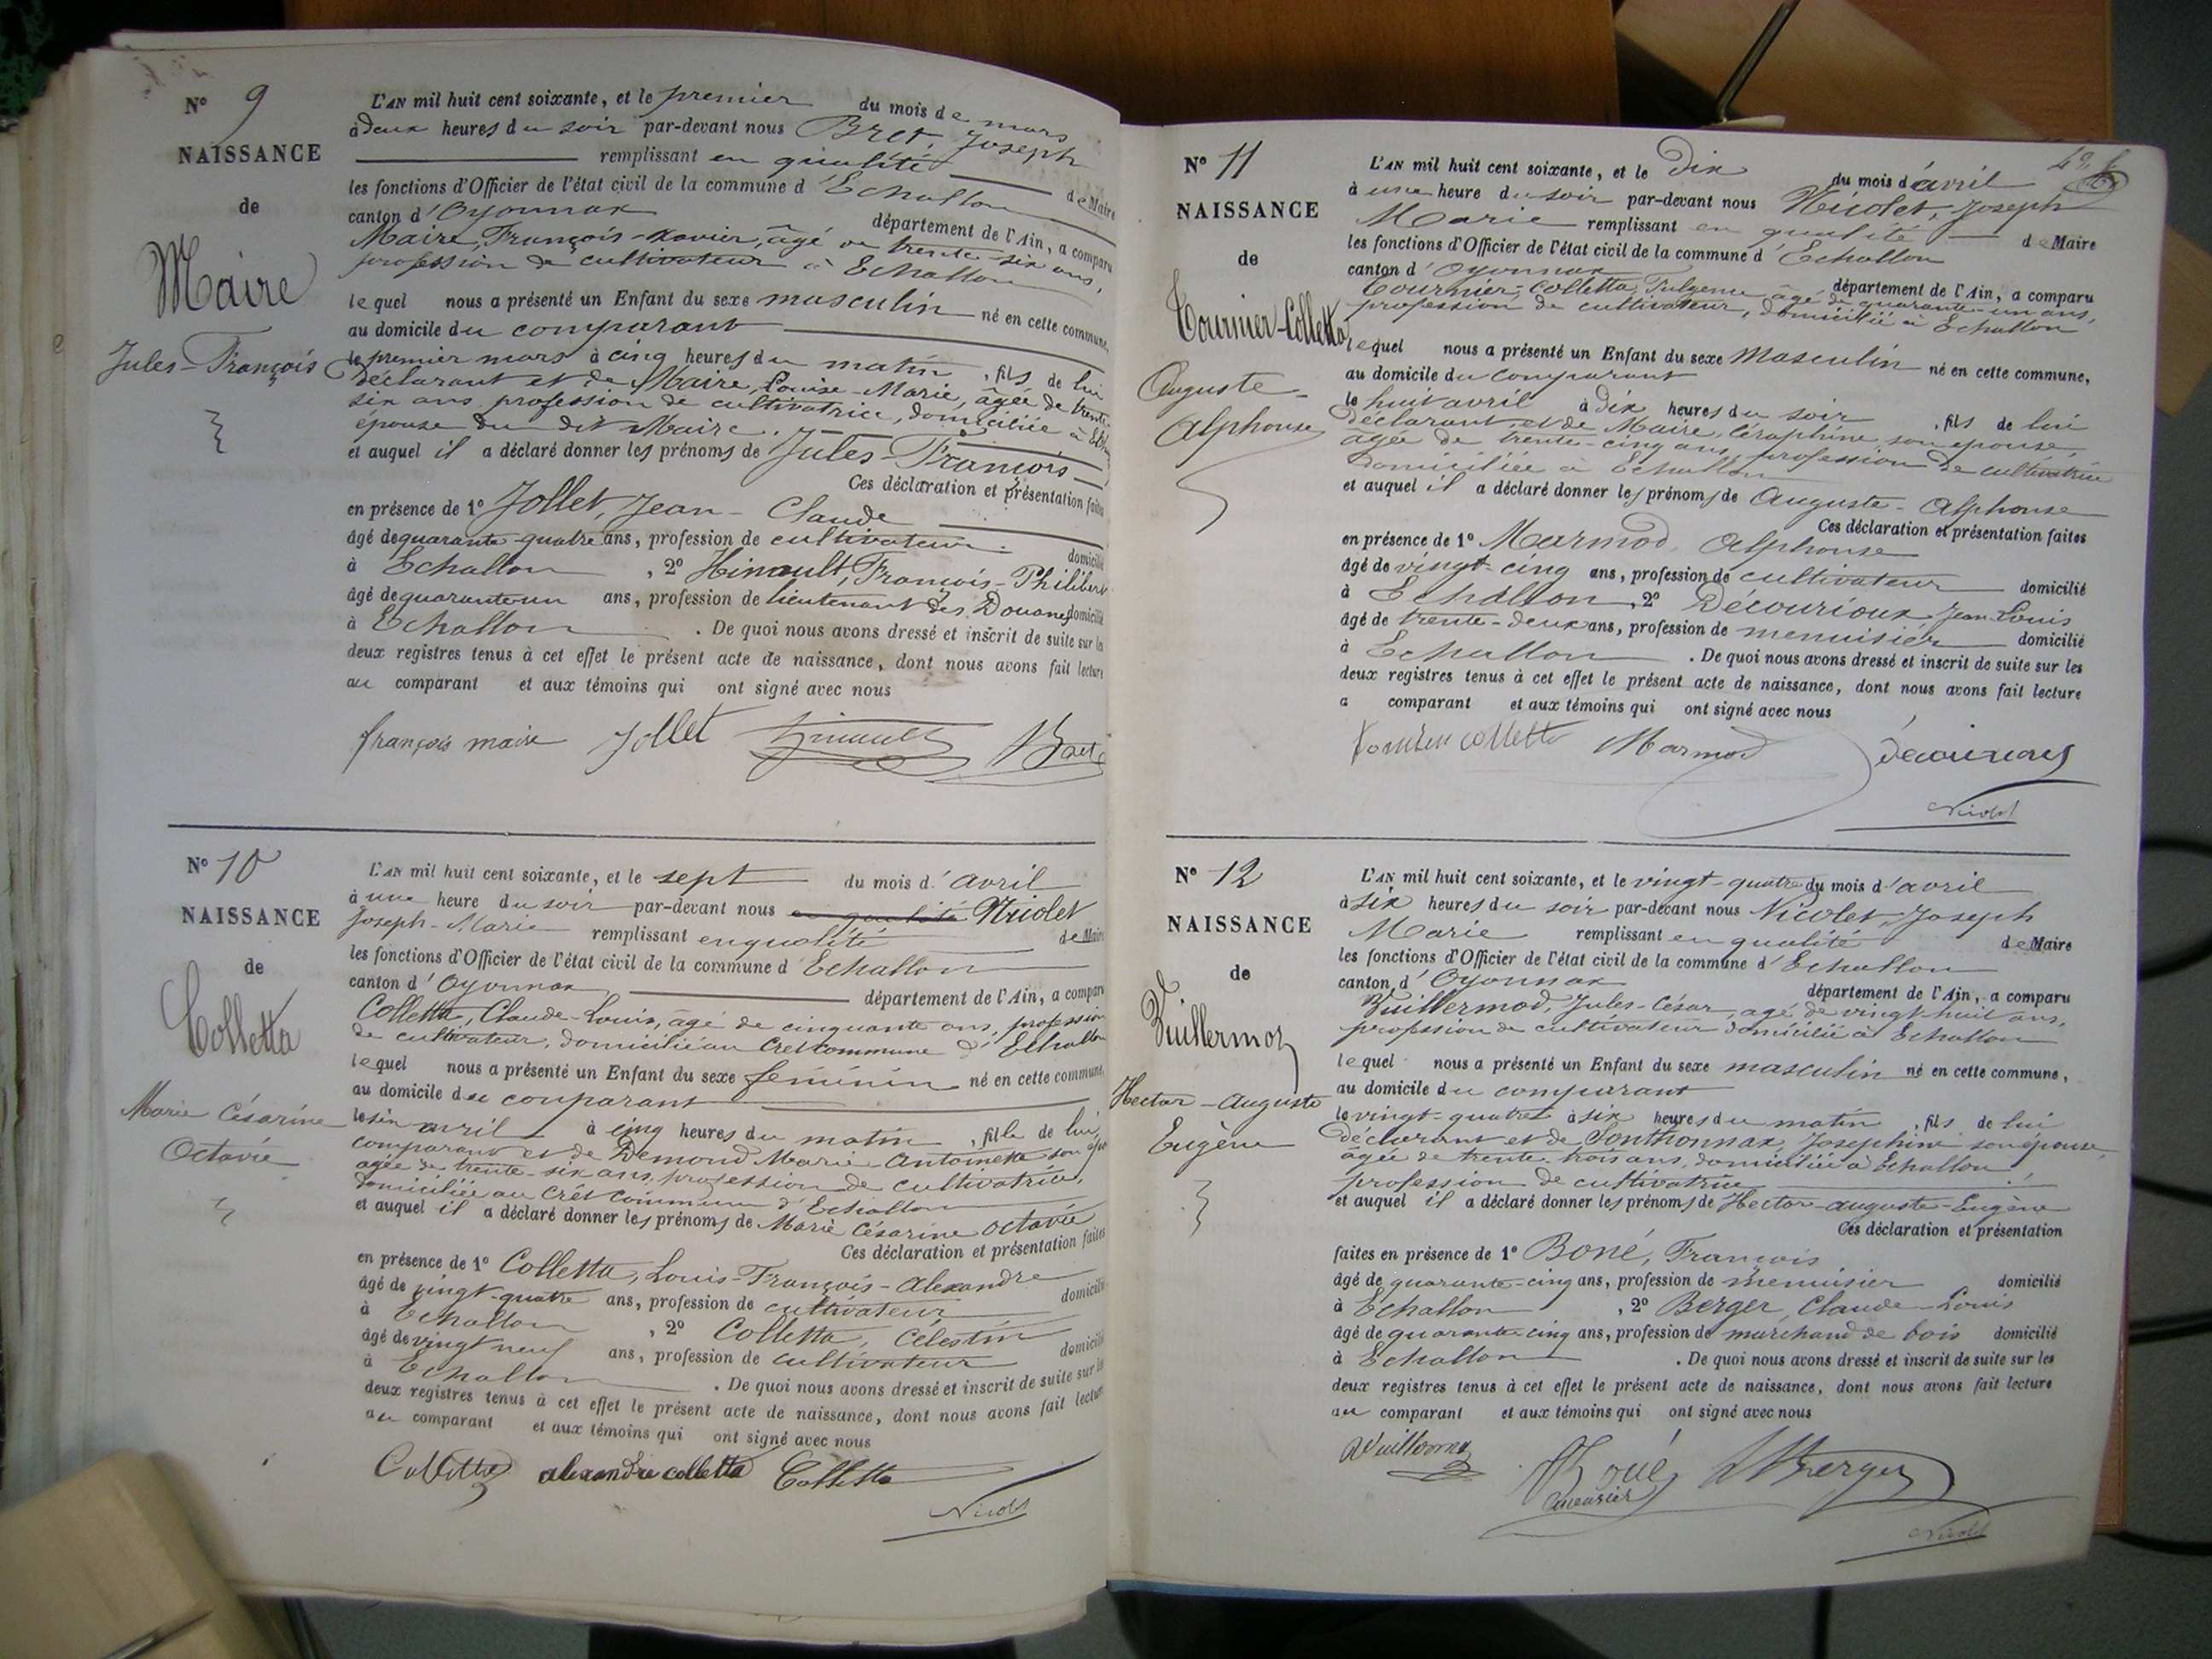 N° 9
NAISSANCE
de
Maire
Jules-François
L'AN mil huit cent soixante, et le premier du mois de mars
à deux heures du soir par-devant nous Bret, Joseph
remplissant en qualité de Maire
les fonctions d'Officier de l'état civil de la commune d'Echallon
canton d'Oyonnax département de l'Ain, a comparu
Maire, François-Xavier, âgé de trente-six ans,
profession de cultivateur à Echallon
lequel nous a présenté un Enfant du sexe masculin né en cette commune,
au domicile du comparant
le premier mars à cinq heures du matin, fils de lui
déclarant et de Maire, Louise-Marie, âgée de trente-
six ans profession de cultivatrice, domiciliée à
épouse du dit Maire.
et auquel il a déclaré donner les prénoms de Jules-François
Ces déclaration et présentation faites
en présence de 1° Jollet, Jean-Claude
âgé de quarante-quatre ans, profession de cultivateur domicilié
à Echallon, 2° Hinault, François-Philibert
âgé de quarante un ans, profession de lieutenant des Douanes domicilié
à Echallon. De quoi nous avons dressé et inscrit de suite sur les
deux registres tenus à cet effet le présent acte de naissance, dont nous avons fait lecture
au comparant et aux témoins qui ont signé avec nous
françois maire Jollet Hinault Bret
N° 10
NAISSANCE
de
Colletta
Marie Césarine
Octavie
L'AN mil huit cent soixante, et le sept du mois d'avril
à une heure du soir par-devant nous en qualité Nicolet
Joseph-Marie remplissant en qualité de Maire
les fonctions d'Officier de l'état civil de la commune d'Echallon
canton d'Oyonnax département de l'Ain, a comparu
Colletta, Claude-Louis, âgé de cinquante ans, profession
de cultivateur, domicilié au Cret commune d'Echallon
lequel nous a présenté un Enfant du sexe féminin né en cette commune,
au domicile du comparant
le six avril à cinq heures du matin, fille de lui,
comparant et de Demond Marie-Antoinette son
âgée de trente-six ans, profession de cultivatrice,
domiciliée au Crêt commune d'Echallon
et auquel il a déclaré donner les prénoms de Marie Césarine Octavie
Ces déclaration et présentation faites
en présence de 1° Colletta, Louis-François-Alexandre
âgé de vingt-quatre ans, profession de cultivateur domicilié
à Echallon, 2° Colletta, Célestin
âgé de vingt neuf ans, profession de cultivateur domicilié
à Echallon. De quoi nous avons dressé et inscrit de suite sur les
deux registres tenus à cet effet le présent acte de naissance, dont nous avons fait lecture
au comparant et aux témoins qui ont signé avec nous
Colletta alexandre colletta Colletta
Nicolet
N° 11
NAISSANCE
de
Tournier-Colletta
Auguste-
Alphonse
L'AN mil huit cent soixante, et le dix du mois d'avril
à une heure du soir par-devant nous Nicolet, Joseph
Marie remplissant en qualité de Maire
les fonctions d'Officier de l'état civil de la commune d'Echallon
canton d'Oyonnax département de l'Ain, a comparu
Tournier-Colletta, Fulgence âgé de quarante-un ans,
profession de cultivateur, domicilié à Echallon
lequel nous a présenté un Enfant du sexe Masculin né en cette commune,
au domicile du comparant
le huit avril à dix heures du soir, fils de lui
déclarant et de Maire, Céraphine son épouse,
âgée de trente-cinq ans, profession de cultivatrice
domiciliée à Echallon
et auquel il a déclaré donner les prénoms de Auguste-Alphonse
Ces déclaration et présentation faites
en présence de 1° Marmod, Alphonse
âgé de vingt-cinq ans, profession de cultivateur domicilié
à Echallon, 2° Décourioux Jean-Louis
âgé de trente-deux ans, profession de menuisier domicilié
à Echallon. De quoi nous avons dressé et inscrit de suite sur les
deux registres tenus à cet effet le présent acte de naissance, dont nous avons fait lecture
a comparant et aux témoins qui ont signé avec nous
colletta Marmod
Nicolet
N° 12
NAISSANCE
de
Vuillermoz
Hector-Auguste
Eugène
L'AN mil huit cent soixante, et le vingt-quatre du mois d'avril
à six heures du soir par-devant nous Nicolet, Joseph
Marie remplissant en qualité de Maire
les fonctions d'Officier de l'état civil de la commune d'Echallon
canton d'Oyonnax département de l'Ain, a comparu
Vuillermoz, Jules-César, âgé de vingt-huit ans,
profession de cultivateur domicilié à Echallon
lequel nous a présenté un Enfant du sexe masculin né en cette commune,
au domicile du comparant
le vingt-quatre à six heures du matin, fils de lui
déclarant et de Sonthonnax, Josephine son épouse
âgée de trente-trois ans, domiciliée à Echallon
profession de cultivatrice
et auquel il a déclaré donner les prénoms de Hector-auguste-Eugène
Ces déclaration et présentation
faites en présence de 1° Boné, François
âgé de quarante-cinq ans, profession de menuisier domicilié
à Echallon, 2° Berger, Claude-Louis
âgé de quarante-cinq ans, profession de marchand de bois domicilié
à Echallon. De quoi nous avons dressé et inscrit de suite sur les
deux registres tenus à cet effet le présent acte de naissance, dont nous avons fait lecture
au comparant et aux témoins qui ont signé avec nous
Vuillermoz Boné Berger
Nicolet